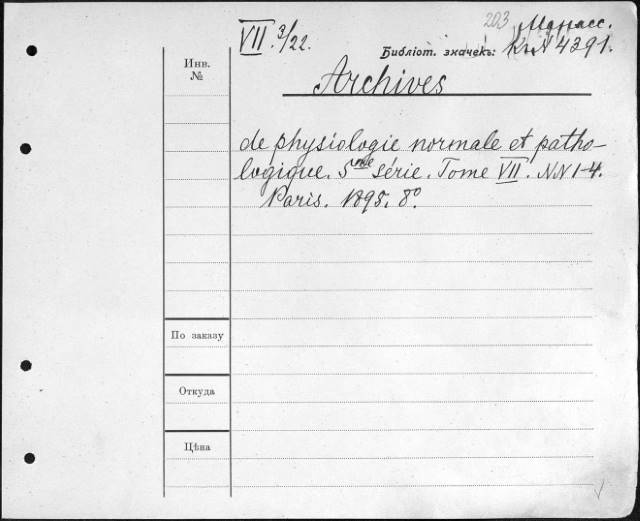 203 Манасс.
VII. 3/22. Библіот. значекъ: Кн. А 4391.
Инв.
№
Archives
de physiologie normale et patho-
logique. 5me série. Tome VII. NN 1-4.
Paris. 1895. 8°.
По заказу
Откуда
Цѣна